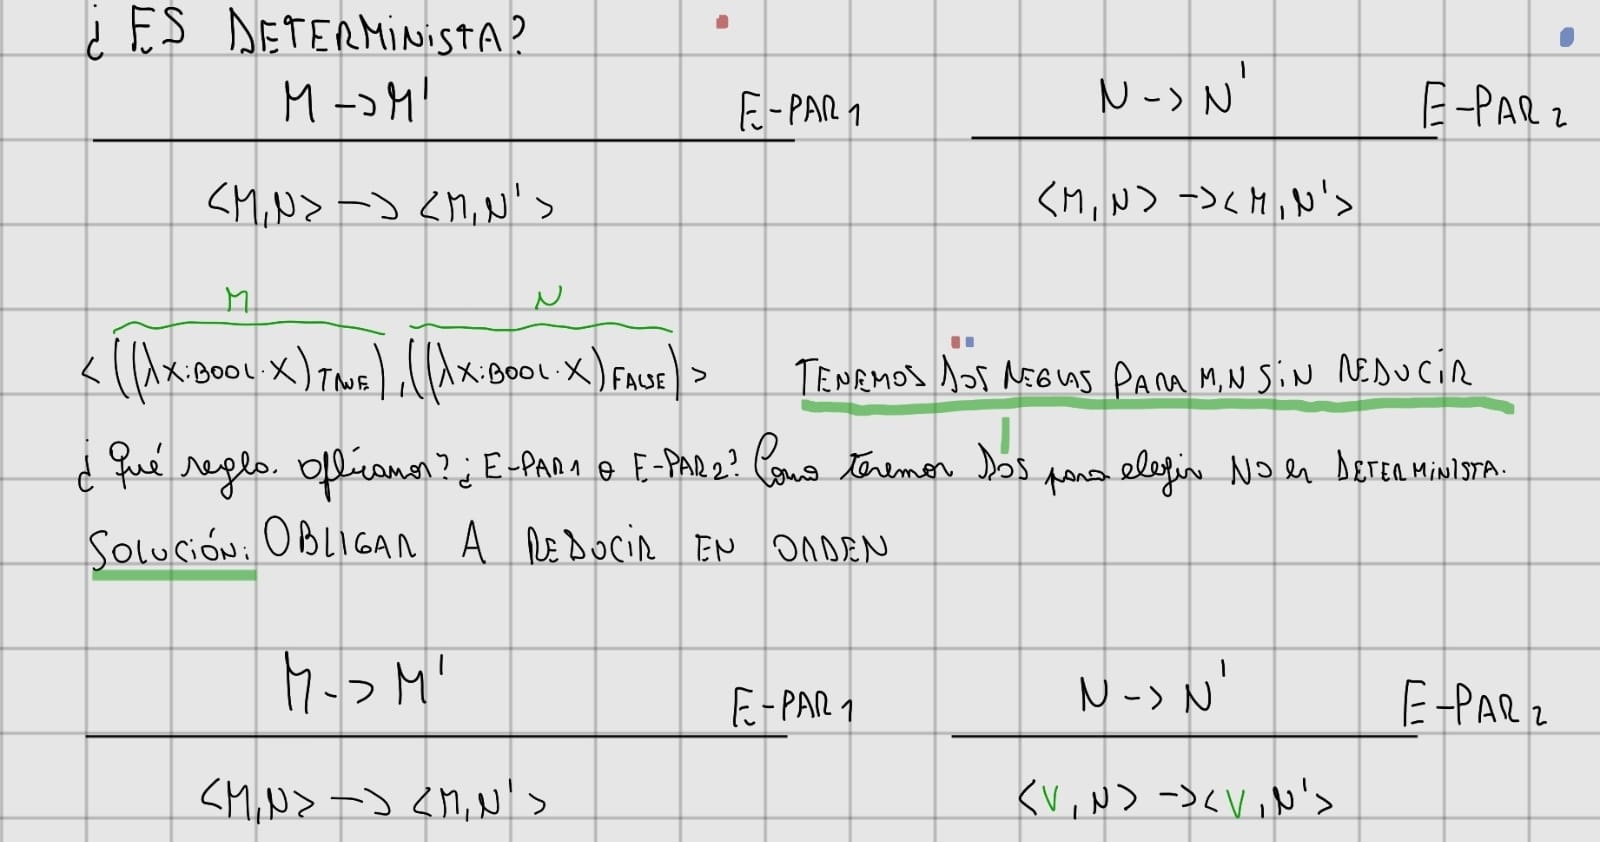 ¿ES DETERMINISTA?
M -> M' E-PAR1 N -> N' E-PAR2
<M,N> -> <M,N'> <M,N> -> <M,N'>
M N
<((λX:BOOL.X)TRUE),((λX:BOOL.X)FALSE)> TENEMOS DOS REGLAS PARA M,N SIN REDUCIR
¿Qué regla aplicamos? ¿E-PAR1 o E-PAR2? Como tenemos DOS para elegir NO es DETERMINISTA.
SOLUCIÓN: OBLIGAR A REDUCIR EN ORDEN
M -> M' E-PAR1 N -> N' E-PAR2
<M,N> -> <M,N'> <V,N> -> <V,N'>